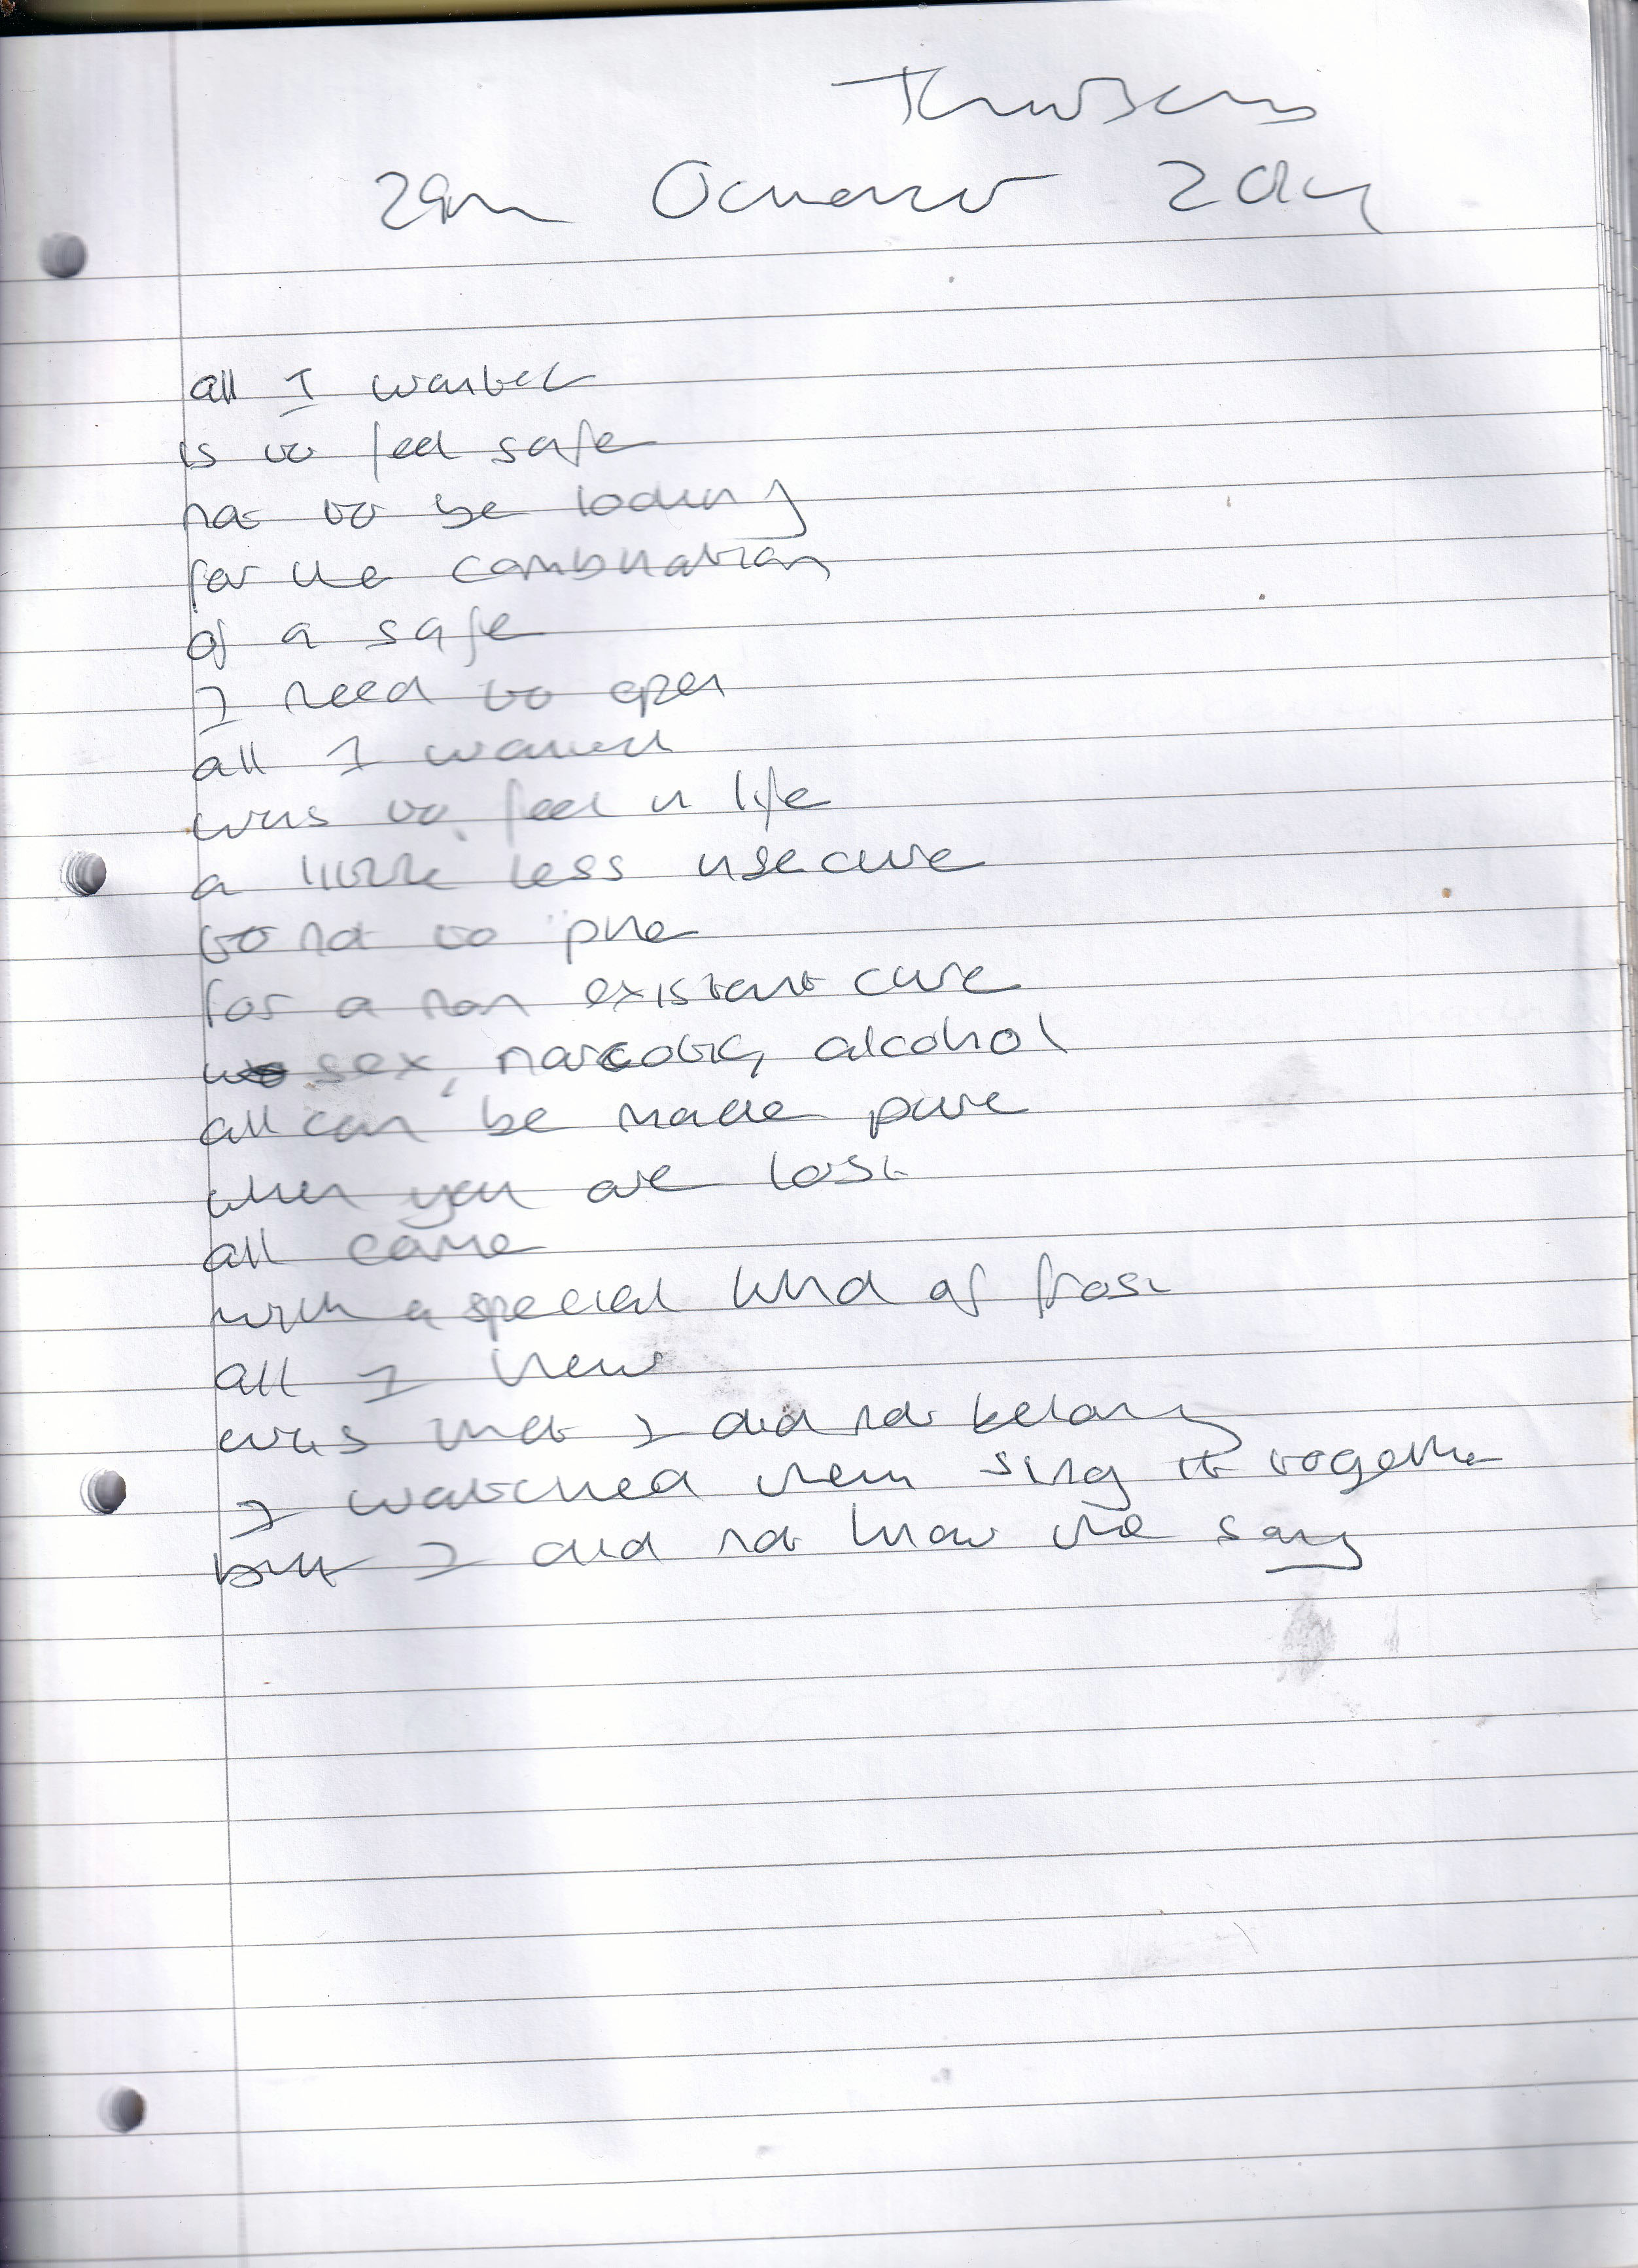 Thursday
29th October 2014
all I wanted
is to feel safe
not to be looking
for the combination
of a safe
I need to open
all I wanted
was to feel in life
a little less insecure
to not to pine
for a non existent cure
sex, narcotics, alcohol
all can be made pure
when you are lost
all came
with a special kind of frost
all I knew
was that I did not belong
I watched them sing it together
but I did not know the song